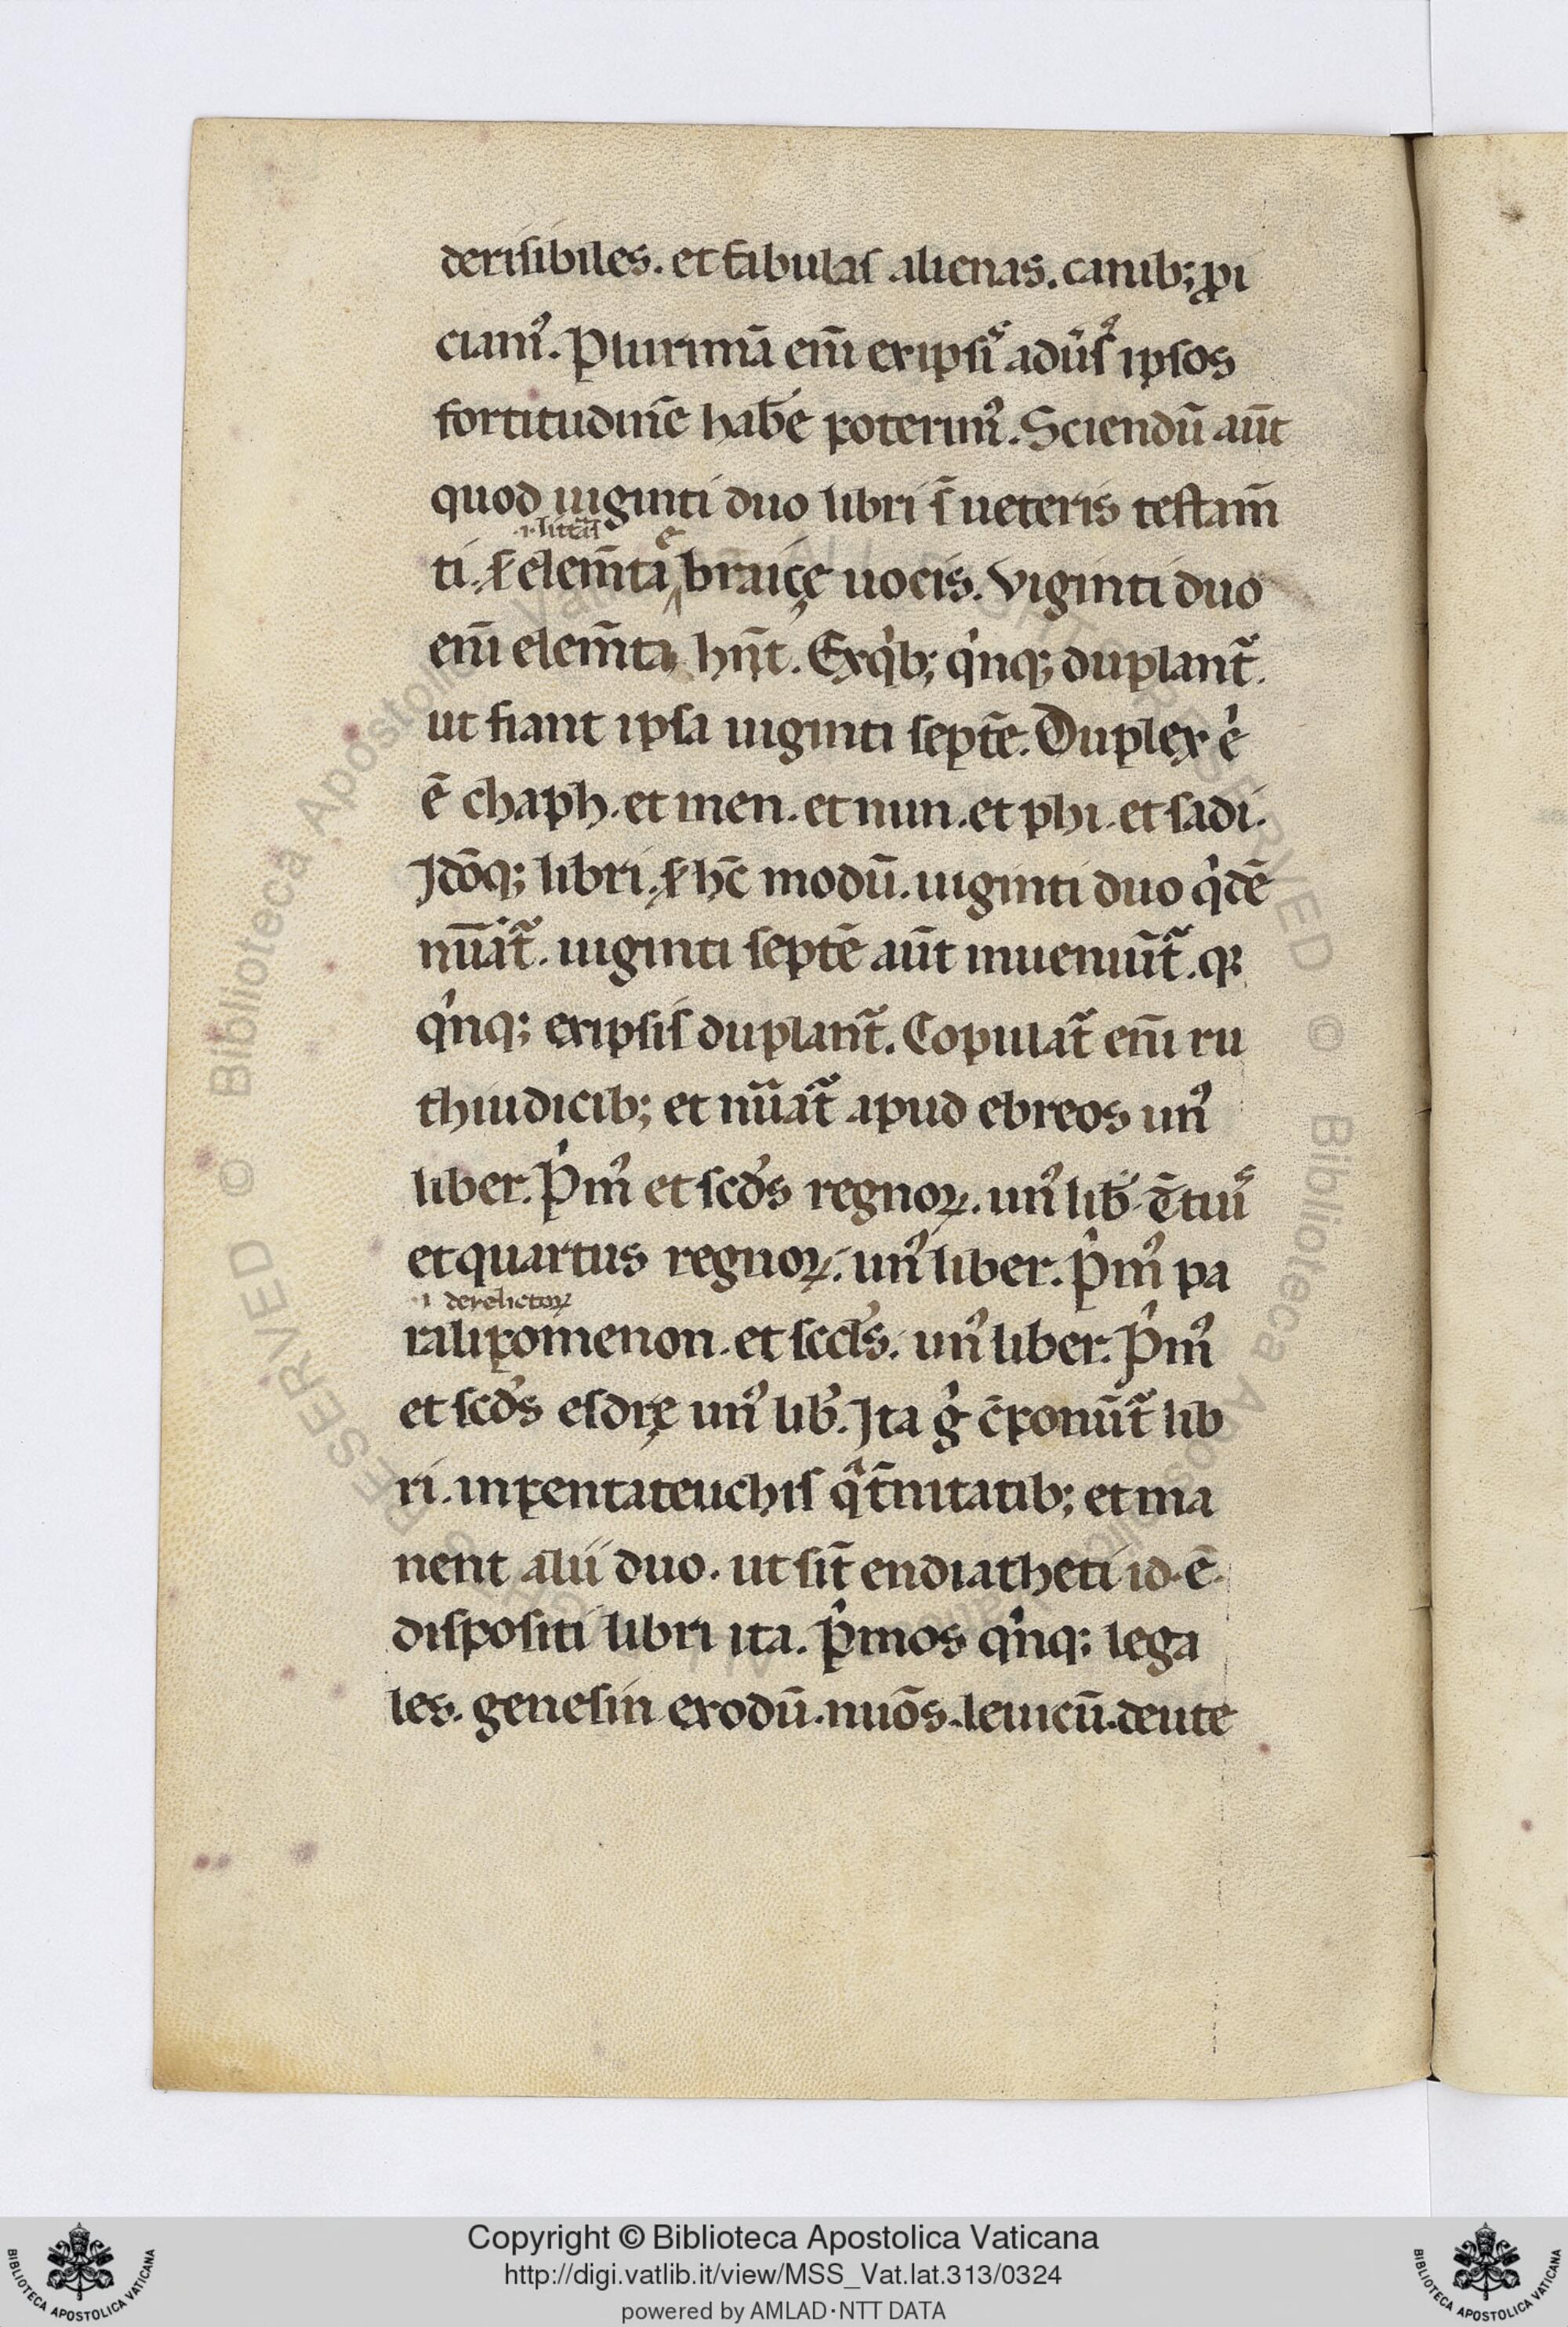 derisibiles. et fabulas alienas. canib; ꝓi
ciamꝰ. Plurimā eni̅ exipsiͤ adu̅sꝰ ipsos
fortitudinē hab̅e poterimꝰ. Sciendū aūt
quod uiginti duo libri s̅ ueteris testam̅
.i. litt̅as
ti. ẜ elem̅ta ͤbraicę uocis. Viginti duo
eni̅ elem̅ta hn̅t. Exqͥb; qͥnq; duplant᷑.
ut fiant ipsa uiginti septē. Duplex eͥ
ē chaph. et men. et nun. et phi. et sadi.
Idōq; libri. ẜ hc̅ modū. uiginti duo qͥdē
nu̅at᷑. uiginti septē aūt inueniūt᷑. q;
qͥnq; exipsis duplant᷑. Copulat᷑ eni̅ ru
thiudicib; et nu̅at᷑ apud ebreos unꝰ
liber. Pͥmꝰ et scd̓s regnoꝝ. unꝰ lib̓. t̅tiuͤ
et quartus regnoꝝ. unꝰ liber. pͥmꝰ pa
.i. derelictoꝝ
ralipomenon. et scd̓s. unꝰ liber. Pͥmꝰ
et scd̓s esdrę unꝰ lib̓. Ita gͥ c̅ponūt᷑ lib
ri. inpentateuchis qͣt̅nitatib; et ma
nent alii duo. ut sīt endiatheti id.ē.
dispositi libri ita. pͥmos qͥnq; lega
les. genesin exodū. nuōs. leuicū. deute
Copyright © Biblioteca Apostolica Vaticana
http://digi.vatlib.it/view/MSS_Vat.lat.313/0324
powered by AMLAD·NTT DATA
BIBLIOTECA APOSTOLICA VATICANA
BIBLIOTECA APOSTOLICA VATICANA